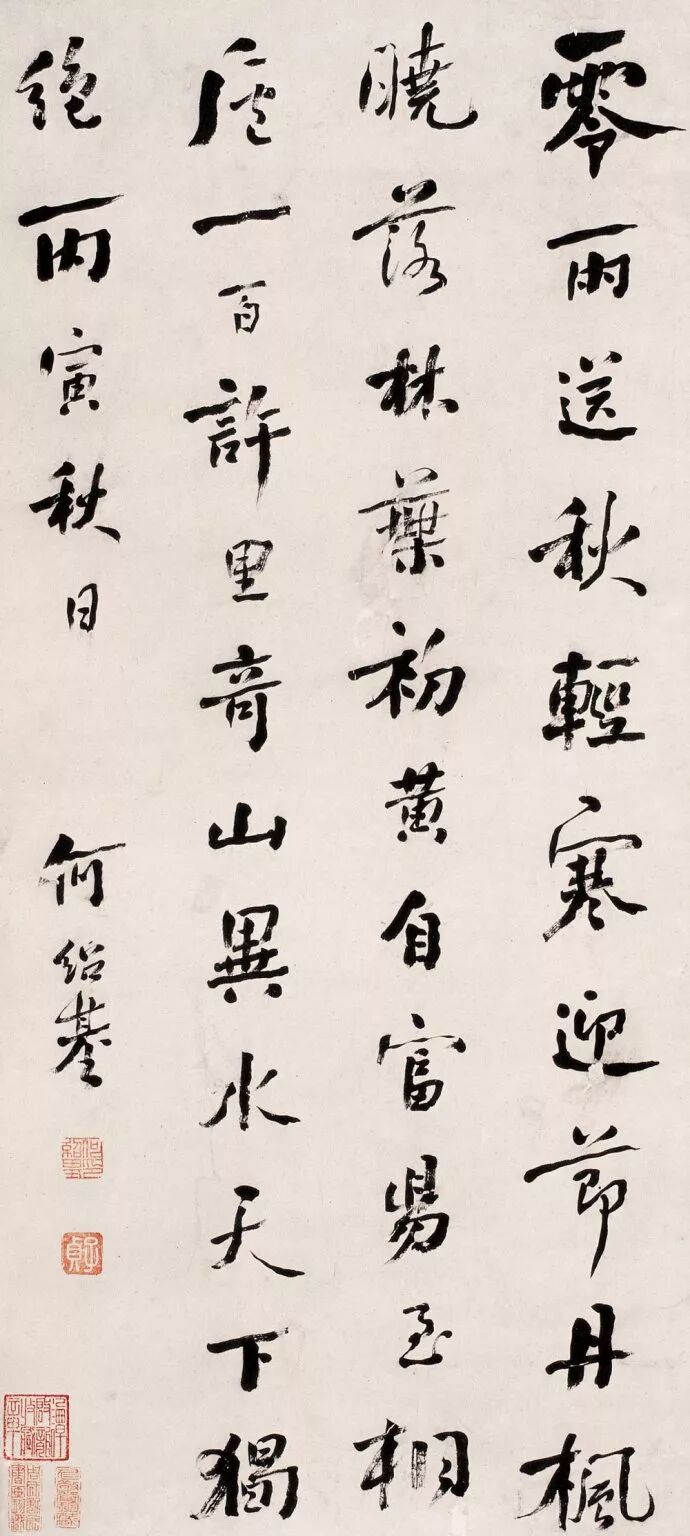 零雨送秋輕寒迎節丹楓
曉落林葉初黃自富昜至桐
廬一百許里奇山異水天下獨
絕丙寅秋日
何紹基
何紹基印
子貞